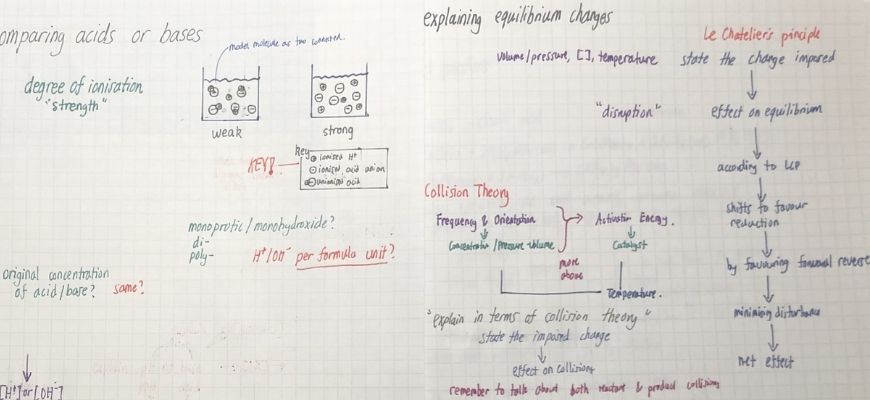 omparing acids or bases
model molecule as two connected.
degree of ionisation
"strength"
weak
strong
KEY!
key
⊕ ionised H⁺
⊖ ionised acid anion
unionised acid
monoprotic/monohydroxide?
di-
poly-
H⁺/OH⁻ per formula unit?
original concentration
of acid/base? same?
[H⁺] or [OH⁻]
explaining equilibrium changes
Le Chatelier's pinciple
volume/pressure, [ ], temperature
state the change imposed
"disruption"
effect on equilibrium
according to LCP
shifts to favour
reduction
by favouring forward reverse
minimising disturbance
net effect
Collision Theory
Frequency & Orientation
Activation Energy.
Concentration/Pressure-Volume
Catalyst
more
above
Temperature.
"explain in terms of collision theory"
state the imposed change
effect on collisions
remember to talk about both reactant & product collisions